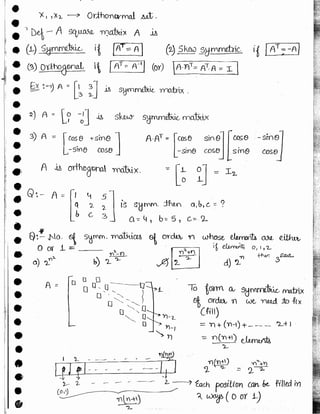 x₁, x₂ → Orthonormal set.
Def – A square matrix A is
(1) Symmetric if Aᵀ = A (2) Skew symmetric if Aᵀ = -A
(3) Orthogonal if Aᵀ = A⁻¹ (or) A·Aᵀ = Aᵀ·A = I
Ex :- 1) A = [1 3; 3 2] is symmetric matrix.
2) A = [0 -1; 1 0] is skew symmetric matrix
3) A = [cosθ +sinθ; -sinθ cosθ] A·Aᵀ = [cosθ sinθ; -sinθ cosθ] [cosθ -sinθ; sinθ cosθ]
A is orthogonal matrix. = [1 0; 0 1] = I₂
Q:- A = [1 4 5; a 2 2; b c 3] is symm. then a, b, c = ?
a = 4, b = 5, c = 2
Q:- No. of symm. matrices of order n whose elements are either
0 or 1 = if elements 0, 1, 2
a) 2ⁿ² b) 2^((n²-n)/2) c) 2^((n²+n)/2) d) 2ⁿ then 3
A = → 1 To form a symmetric matrix
of order n we need to fix
→ n-2 (fill)
→ n-1 = n + (n-1) + - - - 2 + 1
→ n = n(n+1)/2 elements
1 2 - - - - - n(n+1)/2
2^(n(n+1)/2) = 2^((n²+n)/2)
2 2 - - - - - 2 → Each position can be filled in
(0,1) n(n+1)/2 2 ways (0 or 1)